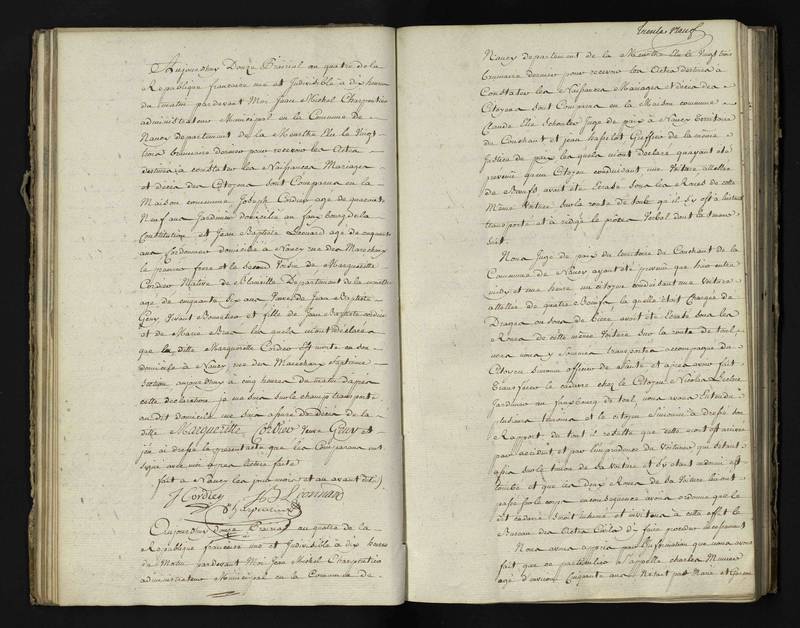 Aujourdhuy Douze Prairial an quatre de la
Republique francaise une et Indivisible à dix heures
du matin pardevant Moi Jean Michel Charpentier
administrateur Municipal en la Commune de
Nancy Departement de la Meurthe Elu le Vingt
trois brumaire dernier pour recevoir les Actes
destinés a constater les Naissances Mariages
et décès des Citoyens sont Comparus en la
Maison commune Joseph Cordier agé de quarente
Neuf ans Jardinier domicilié au faux bourg de la
Constitution et Jean Baptiste Leonard agé de cinquante
ans Cordonnier domicilié a Nancy rue des Marechaux
le premier frere et le second Voisin de Marguerite
Cordier Native de Departement de la meurthe
agée de cinquante six ans Veuve de Jean Baptiste
Geny Vivant et fille de Jean Baptiste Cordier
et de Marie les quels m'ont déclaré
que la ditte Marguerite Cordier est morte en son
domicile à Nancy rue des Marechaux Septieme
Section aujourdhuy à cinq heures du matin d'après
cette déclaration je me suis sur le champ transporté
au dit domicile me suis assuré du Décès de la
ditte Marguerite Cordier Veuve Geny et
j'ai dressé le present acte que les Comparans ont
signé avec moi après lecture faite
fait a Nancy les jour mois et an avant dits
J Cordier J B Leonard
Charpentier
Aujourdhuy douze Prairial an quatre de la
Republique francaise une et Indivisible à dix heures
du Matin pardevant Moi Jean Michel Charpentier
administrateur Municipal en la Commune de
Trente Neuf
Nancy departement de la Meurthe Elu le Vingt trois
brumaire dernier pour recevoir les Actes destinés à
Constater les Naissances Mariages et décès des
Citoyens sont Comparus en la Maison commune
Claude Elie Juge de paix à Nancy territoire
du Couchant et jean Greffier de la même
Justice de paix les quels m'ont Declaré qu'ayant été
prevenus qu'un Citoyen conduisant une Voiture attellée
de Bœufs avait été Ecrasé sous les Roues de cette
Même Voiture sur la route de toul qu'il s'y est à l'instant
transporté et a rédigé le procès Verbal dont la teneur
suit.
Nous Juge de paix du territoire du Couchant de la
Commune de Nancy ayant été prevenu que hier entre
midy et une heure un citoyen conduisant une Voiture
attellée de quatre Bœufs, la quelle étant Chargée de
ou de biere avait été Ecrasé sous les
Roues de cette même Voiture sur la route de toul
nous nous y sommes transportés accompagné du
Citoyen officier de Santé et après avoir fait
transferer le cadavre chez le Citoyen Nicolas
Jardinier au faux bourg de toul, nous avons Entendu
plusieurs temoins et le citoyen a dressé son
Rapport du tout il resulte que cette mort est arrivée
par accident et par l'imprudence du Voiturier qui s'etant
assis sur le timon de sa voiture et s'y étant endormi est
tombé et que les Deux Roues de la Voiture lui ont
passé sur le corps en consequence avons ordonné que le
dit cadavre serait inhumé et invitons à cette effet le
Bureau des Actes Civils d'y faire proceder incessament
Nous avons appris par l'information que nous avons
fait que ce particulier s'appelle charles
agé d'environ Cinquante ans Natif Marié et